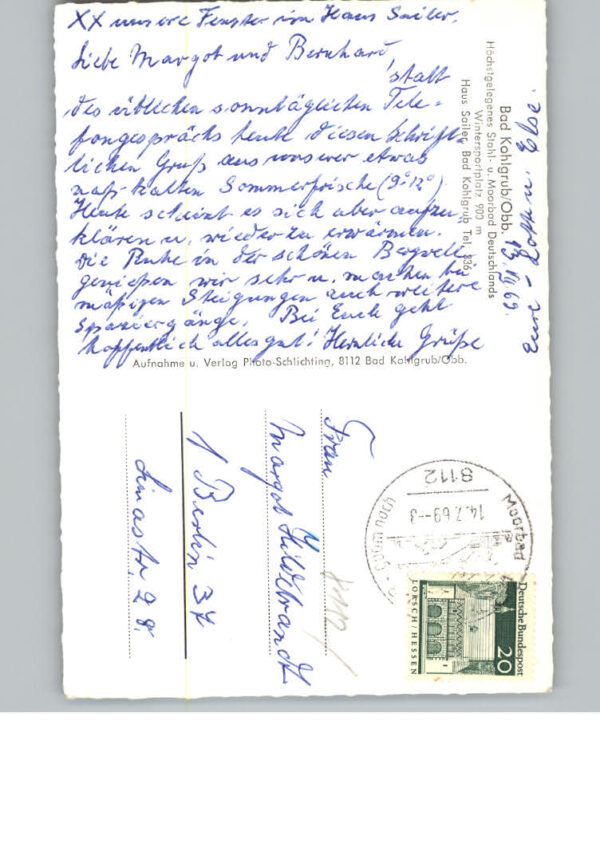 XX unsere Fenster im Haus Sailer.
Liebe Margot und Bernhard,
statt
des üblichen sonntäglichen Tele-
fongesprächs heute diesen schrift-
lichen Gruß aus unserer etwas
naß-kalten Sommerfrische (9°-12°)
Heute scheint es sich aber aufzu
klären u. wieder zu erwärmen.
Die Ruhe in der schönen Bergwelt
genießen wir sehr u. machen bei
mäßigen Steigungen auch weitere
Spaziergänge. Bei Euch geht
hoffentlich alles gut! Herzliche Grüße
Eure Lotte u. Else.
13.VII.69.
Bad Kohlgrub/Obb.
Höchstgelegenes Stahl- u. Moorbad Deutschlands
Wintersportplatz 900 m
Haus Sailer, Bad Kohlgrub Tel. 336
Aufnahme u. Verlag Photo-Schlichting, 8112 Bad Kohlgrub/Obb.
Frau
Margot Hildebrandt
1 Berlin 37
Limastr. 28.
8112
14.7.69--3
Moorbad
Deutsche Bundespost
20
LORSCH/HESSEN